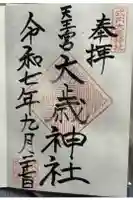 奉拝
天王宮
大歳神社
令和七年九月二十一日